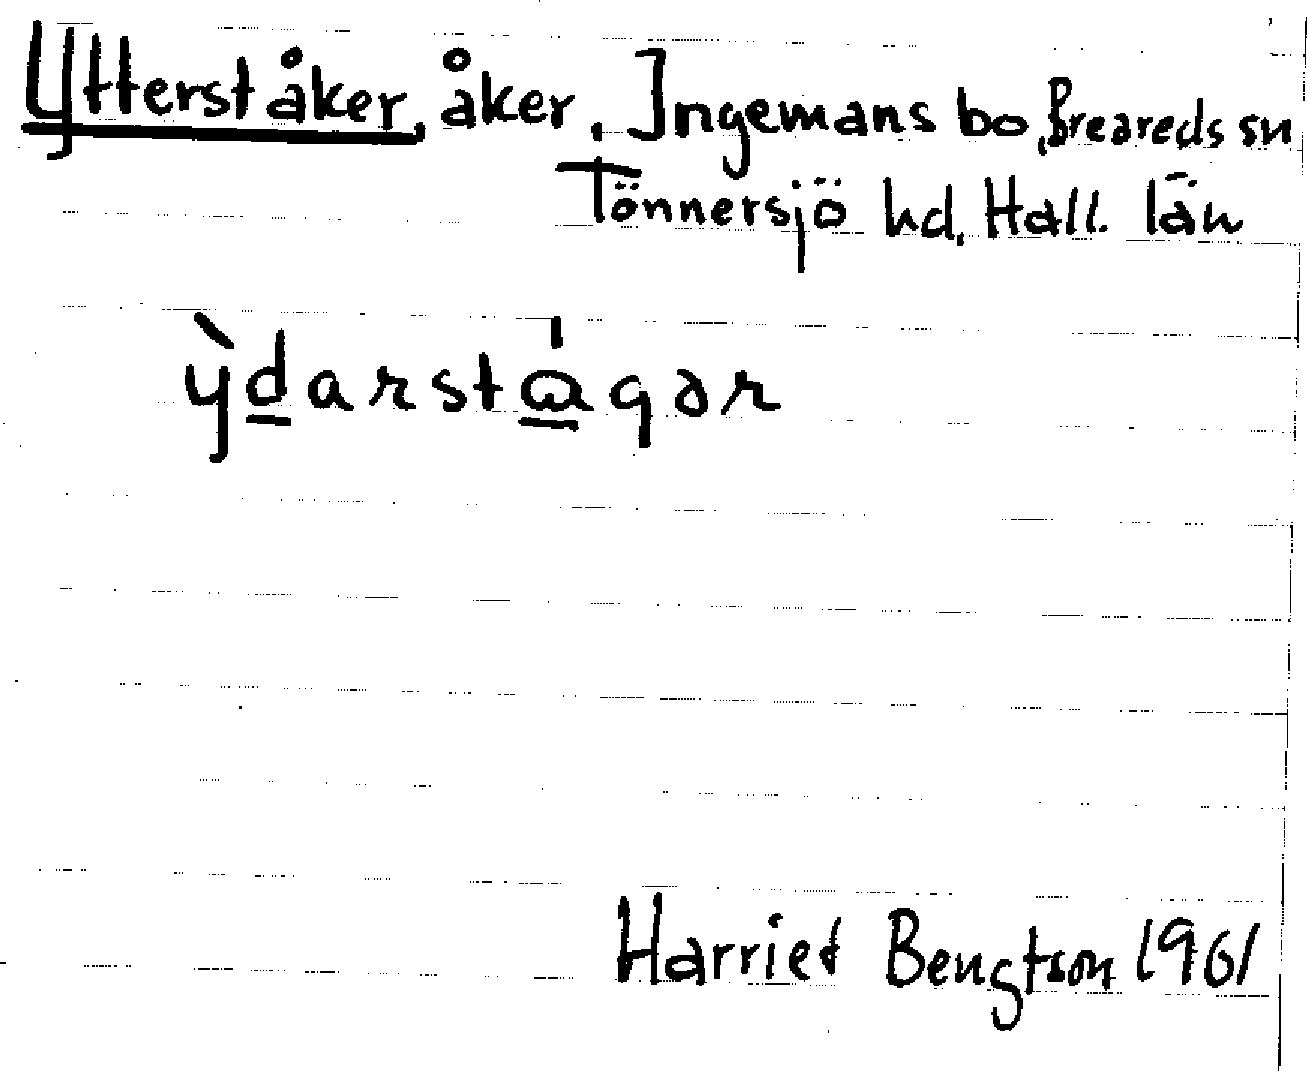 Ytterståker, åker, Ingemans bo, Breareds sn
Tönnersjö hd, Hall. län
ỳd̲arstɑ̲́gər
Harriet Bengtson 1961